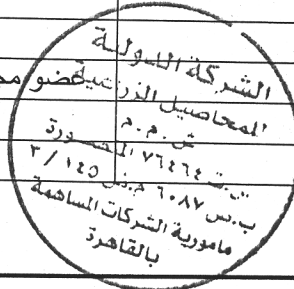 الشركة الدولية
للمحاصيل الزراعية
عضو
ش . م . م
س.ت ٧٦٤٦٤ المنصورة
ب.س ٦٠٨٧ م.ض ١٤٥ / ٣
مأمورية الشركات المساهمة
بالقاهرة